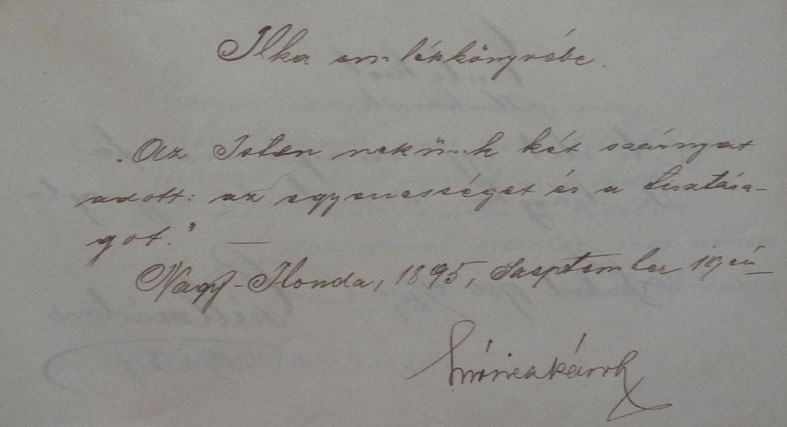 Ilka emlékkönyvébe.
„Az Isten nekünk két szárnyat
adott: az egyenességet és a tisztasá-
got." —
Nagy-Ilonda, 1895, Szeptember